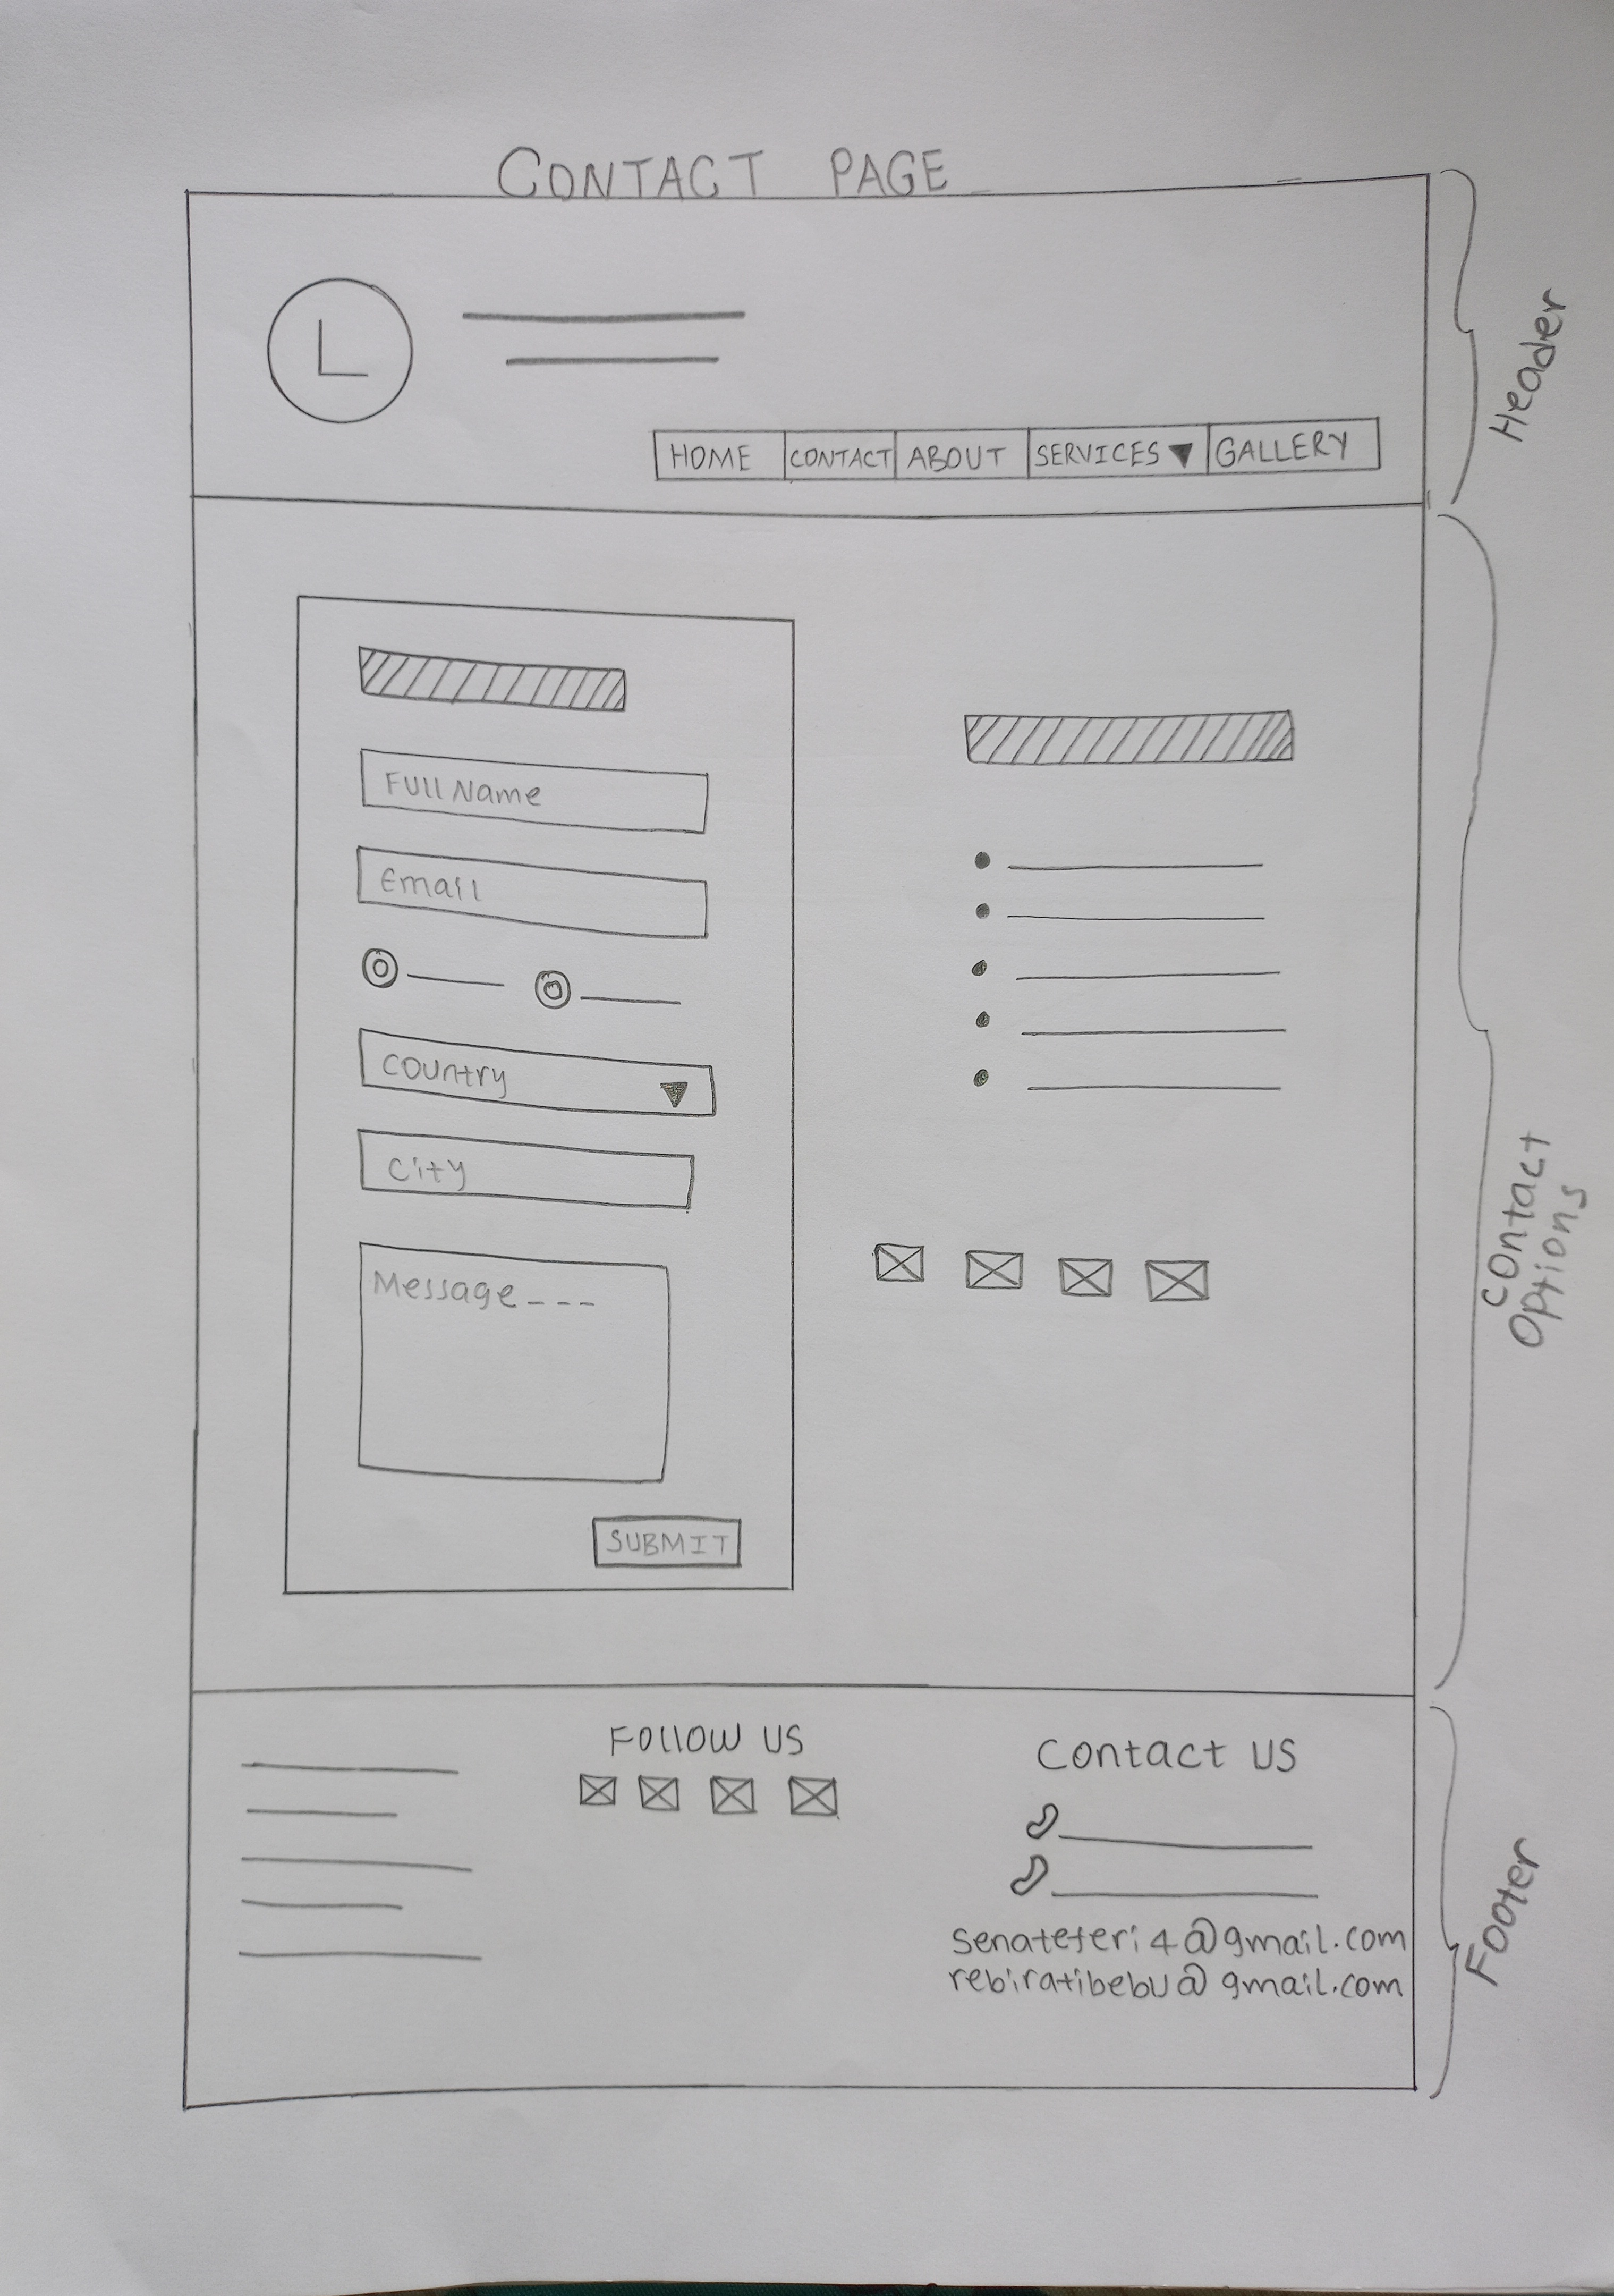 CONTACT PAGE
L
HOME CONTACT ABOUT SERVICES GALLERY
Header
Full Name
Email
Country
City
Message---
SUBMIT
Contact
Options
Follow US
Contact US
senateferi4@gmail.com
rebiratibebu@gmail.com
Footer